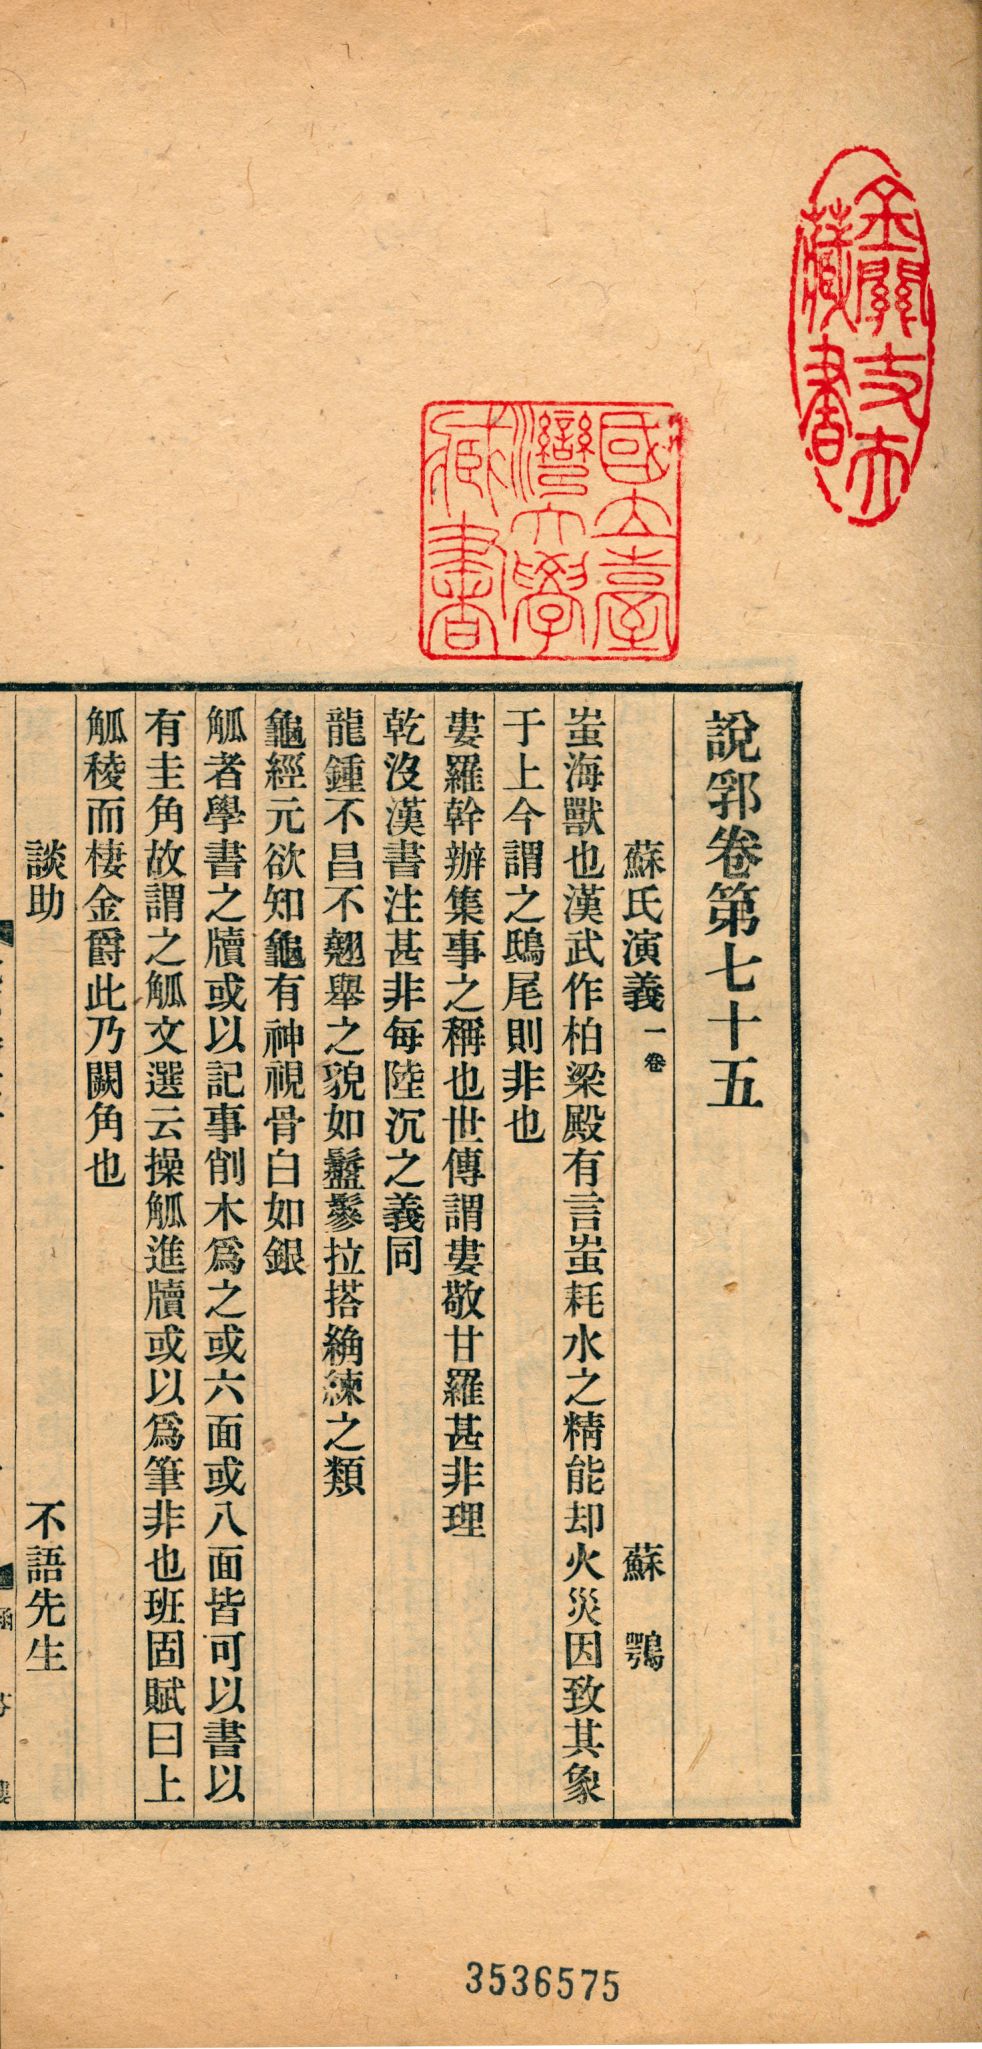 說郛卷第七十五
蘇氏演義一卷 蘇鶚
蚩海獸也漢武作柏梁殿有言蚩耗水之精能却火災因致其象
于上今謂之鴟尾則非也
婁羅幹辦集事之稱也世傳謂婁敬甘羅甚非理
乾沒漢書注甚非每陸沉之義同
龍鍾不昌不翹舉之貌如鬖拉搭之類
龜經元欲知龜有神視骨白如銀
觚者學書之牘或以記事削木爲之或六面或八面皆可以書以
有圭角故謂之觚文選云操觚進牘或以爲筆非也班固賦曰上
觚稜而棲金爵此乃闕角也
談助 不語先生
國立臺
灣大學
藏書
藏書
3536575